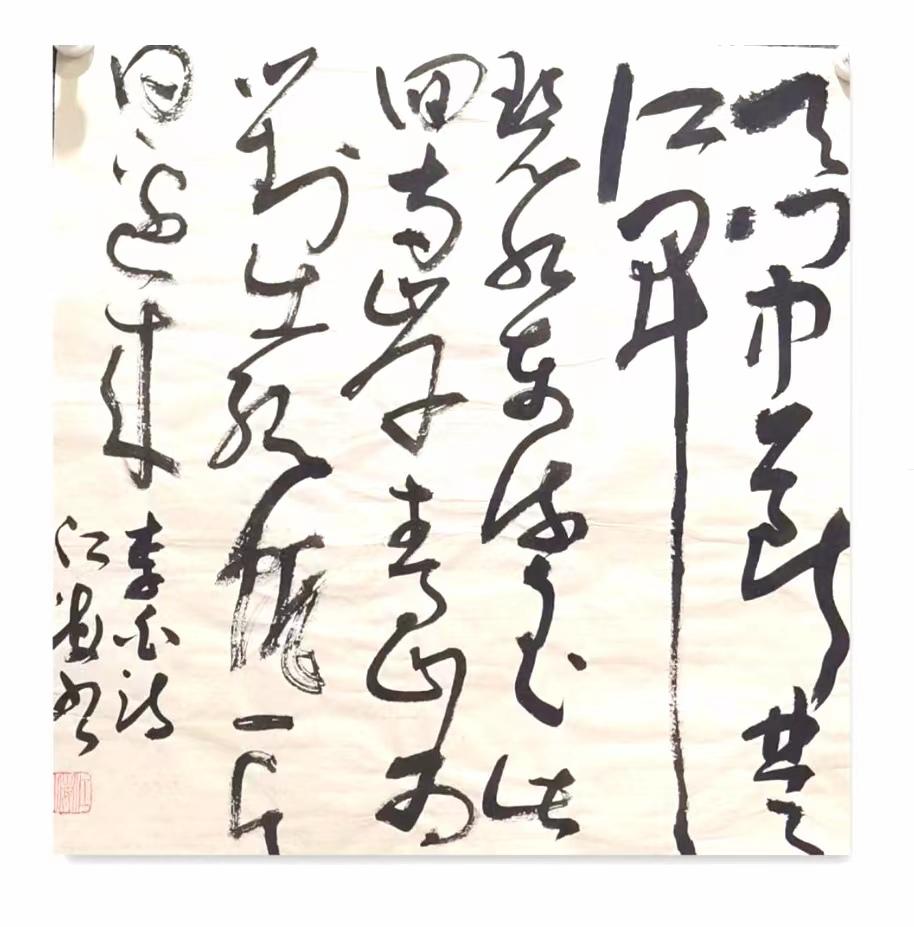 天门中断楚
江开
碧水东流至此
回两岸青山相
对出孤帆一片
日边来
李白诗
江书